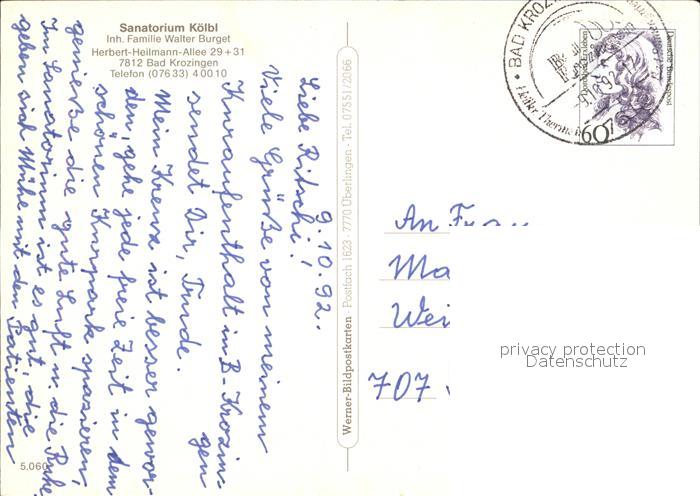 Sanatorium Kölbl
Inh. Familie Walter Burget
Herbert-Heilmann-Allee 29+31
7812 Bad Krozingen
Telefon (07633) 40010
9.10.92.
Liebe Ritschi!
Viele Grüße von meinem
Kuraufenthalt in B-Krozin-
gen
sendet Dir, Trude.
Mein Kreuz ist besser gewor-
den, gehe jede freie Zeit in dem
schönen Kurpark spazieren,
genieße die gute Luft u. die Ruhe.
Im Sanatorium ist es gut, die
geben sich Mühe mit den Patienten
5.060
Werner-Bildpostkarten · Postfach 1623 · 7770 Überlingen · Tel. 07551/2066
BAD KROZIN
Heißer Thermen
9.10.92
Dorothea Erxleben
Deutsche Bundespost
60
An Frau
Ma
Wei
707
privacy protection
Datenschutz